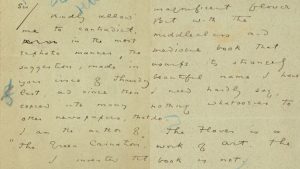 Sir/
Kindly allow
me to contradict,
in the most
emphatic manner, the
suggestion, made in
your issue of Thursday
last and since then
copied into many
other newspapers, that
I am the author of
"The Green Carnation".
I invented that
magnificent flower
But with the
middleclass and
mediocre book that
usurps its strangely
beautiful name I have
need hardly say,
nothing whatsoever to
do.
The Flower is a
work of art. The
book is not.